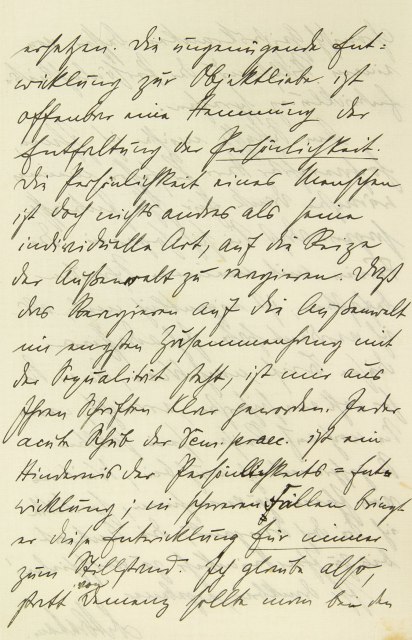 ersetzen. Die ungenügende Ent=
wicklung zur Objektliebe ist
offenbar eine Hemmung der
Entfaltung der Persönlichkeit.
Die Persönlichkeit eines Menschen
ist doch nichts andres als seine
individuelle Art, auf die Reize
der Außenwelt zu reagieren. Daß
das Reagieren auf die Außenwelt
im engsten Zusammenhang mit
der Sexualität steht, ist mir aus
Ihren Schriften klar geworden. Jeder
acute Schub der Dem. praec. ist ein
Hindernis der Persönlichkeits=Ent=
wicklung; in schweren Fällen bringt
er diese Entwicklung für immer
zum Stillstand. Ich glaube also,
statt von Demenz sollte man bei den